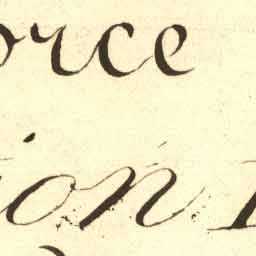 orce
ion